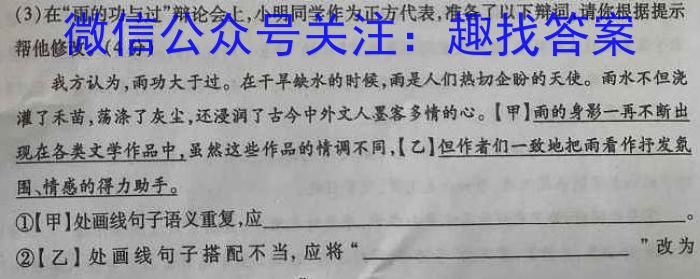 (3)在“雨的功与过”辩论会上,小明同学作为正方代表,准备了以下辩词,请你根据提示
帮他修改。(4分)
微信公众号关注：趣找答案
我方认为,雨功大于过。在干旱缺水的时候,雨是人们热切企盼的天使。雨水不但浇
灌了禾苗,荡涤了灰尘,还浸润了古今中外文人墨客多情的心。【甲】雨的身影一再不断出
现在各类文学作品中,虽然这些作品的情调不同,【乙】但作者们一致地把雨看作抒发氛
围、情感的得力助手。
①【甲】处画线句子语义重复,应____________。
②【乙】处画线句子搭配不当,应将“____________”改为